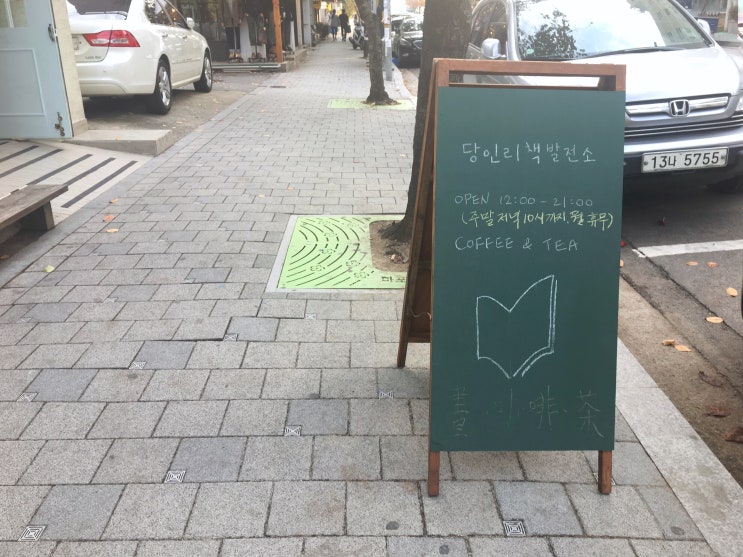 당인리책발전소
OPEN 12:00 - 21:00
(주말 저녁 10시까지, 월 휴무)
COFFEE & TEA
書·咖啡·茶
13너 5755
마포